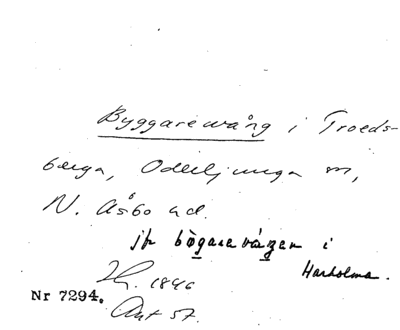 Byggarevång i Troeds-
berga, Oderljunga sn,
N. Åsbo hd.
jfr bögarevången i
Harholma.
1846
Nr 7294.
Ant 57.